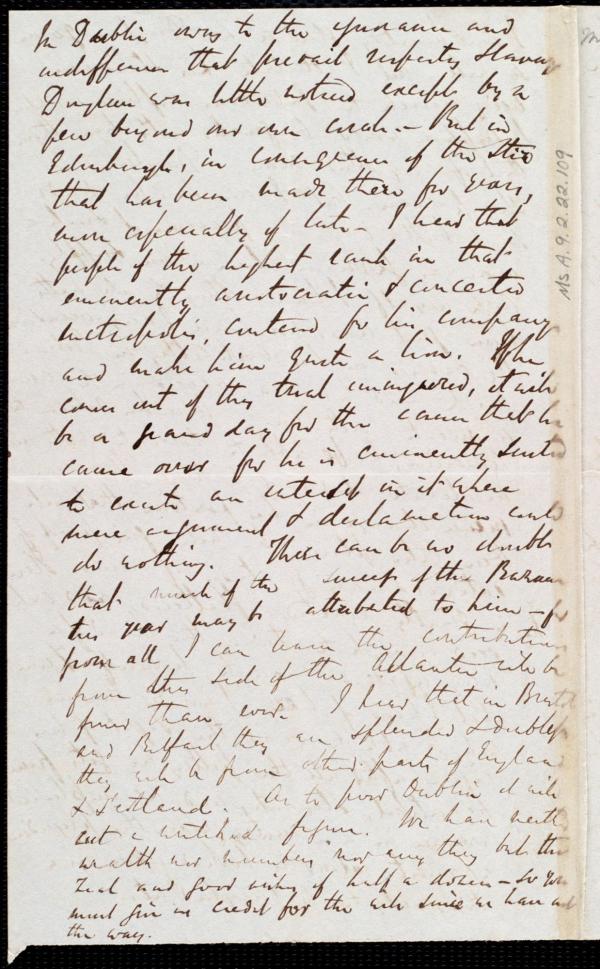 In Dublin owing to the ignorance and
indifference that prevail respecting Slavery
Douglass was little noticed except by a
few beyond our own circle - But in
Edinburgh, in consequence of the Stir
that has been made there for years,
more especially of late - I hear that
people of the highest rank in that
eminently aristocratic & conceited
metropolis, contend for his company
and make him quite a lion. If he
comes out of this trial uninjured, it will
be a grand day for the cause that he
came over for he is eminently suited
to excite an interest in it where
mere argument & declamation could
do nothing. There can be no doubt
that much of the success of this Bazaar
this year may be attributed to him - for
from all I can learn the contributions
from this side of the Atlantic will be
finer than ever. I hear that in Bristol
and Belfast they are splendid & doubtless
they will be from other parts of England
& Scotland. As to poor Dublin it will
cut a wretched figure. We have neither
wealth nor numbers nor any thing but the
zeal and good wishes of half a dozen - so you
must give us credit for the will since we have not
the way.
Ms A.9.2.22.109